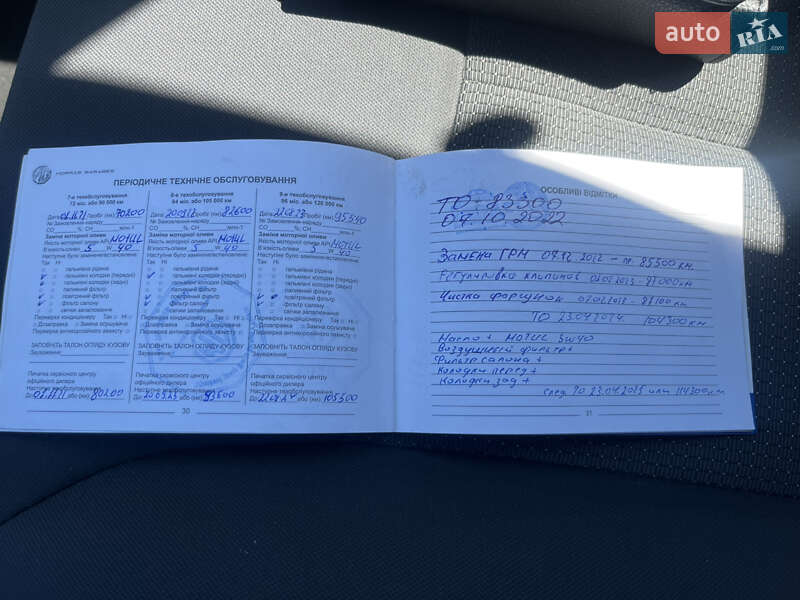 auto RIA
MORRIS GARAGES
ПЕРІОДИЧНЕ ТЕХНІЧНЕ ОБСЛУГОВУВАННЯ
7-е техобслуговування
72 міс. або 90 000 км
Дата Пробіг (км) 70200
№ Замовлення-наряду
CO % CH млн-1
Заміна моторної оливи
Якість моторної оливи API MOTUL
В'язкість оливи 5 W 40
Наступне було замінено/встановлено:
Так Ні
гальмівна рідина
гальмівні колодки (передні)
гальмівні колодки (задні)
паливний фільтр
повітряний фільтр
фільтр салону
свічки запалювання
Перевірка кондиціонеру Так Ні
Дозаправка Заміна осушувача
Перевірка антикорозійного захисту
ЗАПОВНІТЬ ТАЛОН ОГЛЯДУ КУЗОВУ
Зауваження:
Печатка сервісного центру
офіційного дилера
Наступне техобслуговування
До або (км) 80200
8-е техобслуговування
84 міс. або 105 000 км
Дата Пробіг (км) 82600
№ Замовлення-наряду
CO % CH млн-1
Заміна моторної оливи
Якість моторної оливи API MOTUL
В'язкість оливи 5 W 40
Наступне було замінено/встановлено:
Так Ні
гальмівна рідина
гальмівні колодки (передні)
гальмівні колодки (задні)
паливний фільтр
повітряний фільтр
фільтр салону
свічки запалювання
Перевірка кондиціонеру Так Ні
Дозаправка Заміна осушувача
Перевірка антикорозійного захисту
ЗАПОВНІТЬ ТАЛОН ОГЛЯДУ КУЗОВУ
Зауваження:
Печатка сервісного центру
офіційного дилера
Наступне техобслуговування
До або (км) 93500
9-е техобслуговування
96 міс. або 120 000 км
Дата Пробіг (км) 95340
№ Замовлення-наряду
CO % CH млн-1
Заміна моторної оливи
Якість моторної оливи API MOTUL
В'язкість оливи 5 W 40
Наступне було замінено/встановлено:
Так Ні
гальмівна рідина
гальмівні колодки (передні)
гальмівні колодки (задні)
паливний фільтр
повітряний фільтр
фільтр салону
свічки запалювання
Перевірка кондиціонеру Так Ні
Дозаправка Заміна осушувача
Перевірка антикорозійного захисту
ЗАПОВНІТЬ ТАЛОН ОГЛЯДУ КУЗОВУ
Зауваження:
Печатка сервісного центру
офіційного дилера
Наступне техобслуговування
До або (км) 105300
30
ОСОБЛИВІ ВІДМІТКИ
ТО - 83300
07.10.2022
Замена ГРМ 07.12 2022 - 85300 км.
Регулировка клапанов
Чистка форсунок
ТО 23.04.2024 104300 км.
Масло + MOTUL 5w40
Воздушный фильтр +
Фильтр салона +
Колодки перед +
Колодки зад +
след ТО 23.04.2025 или 114300 км
31